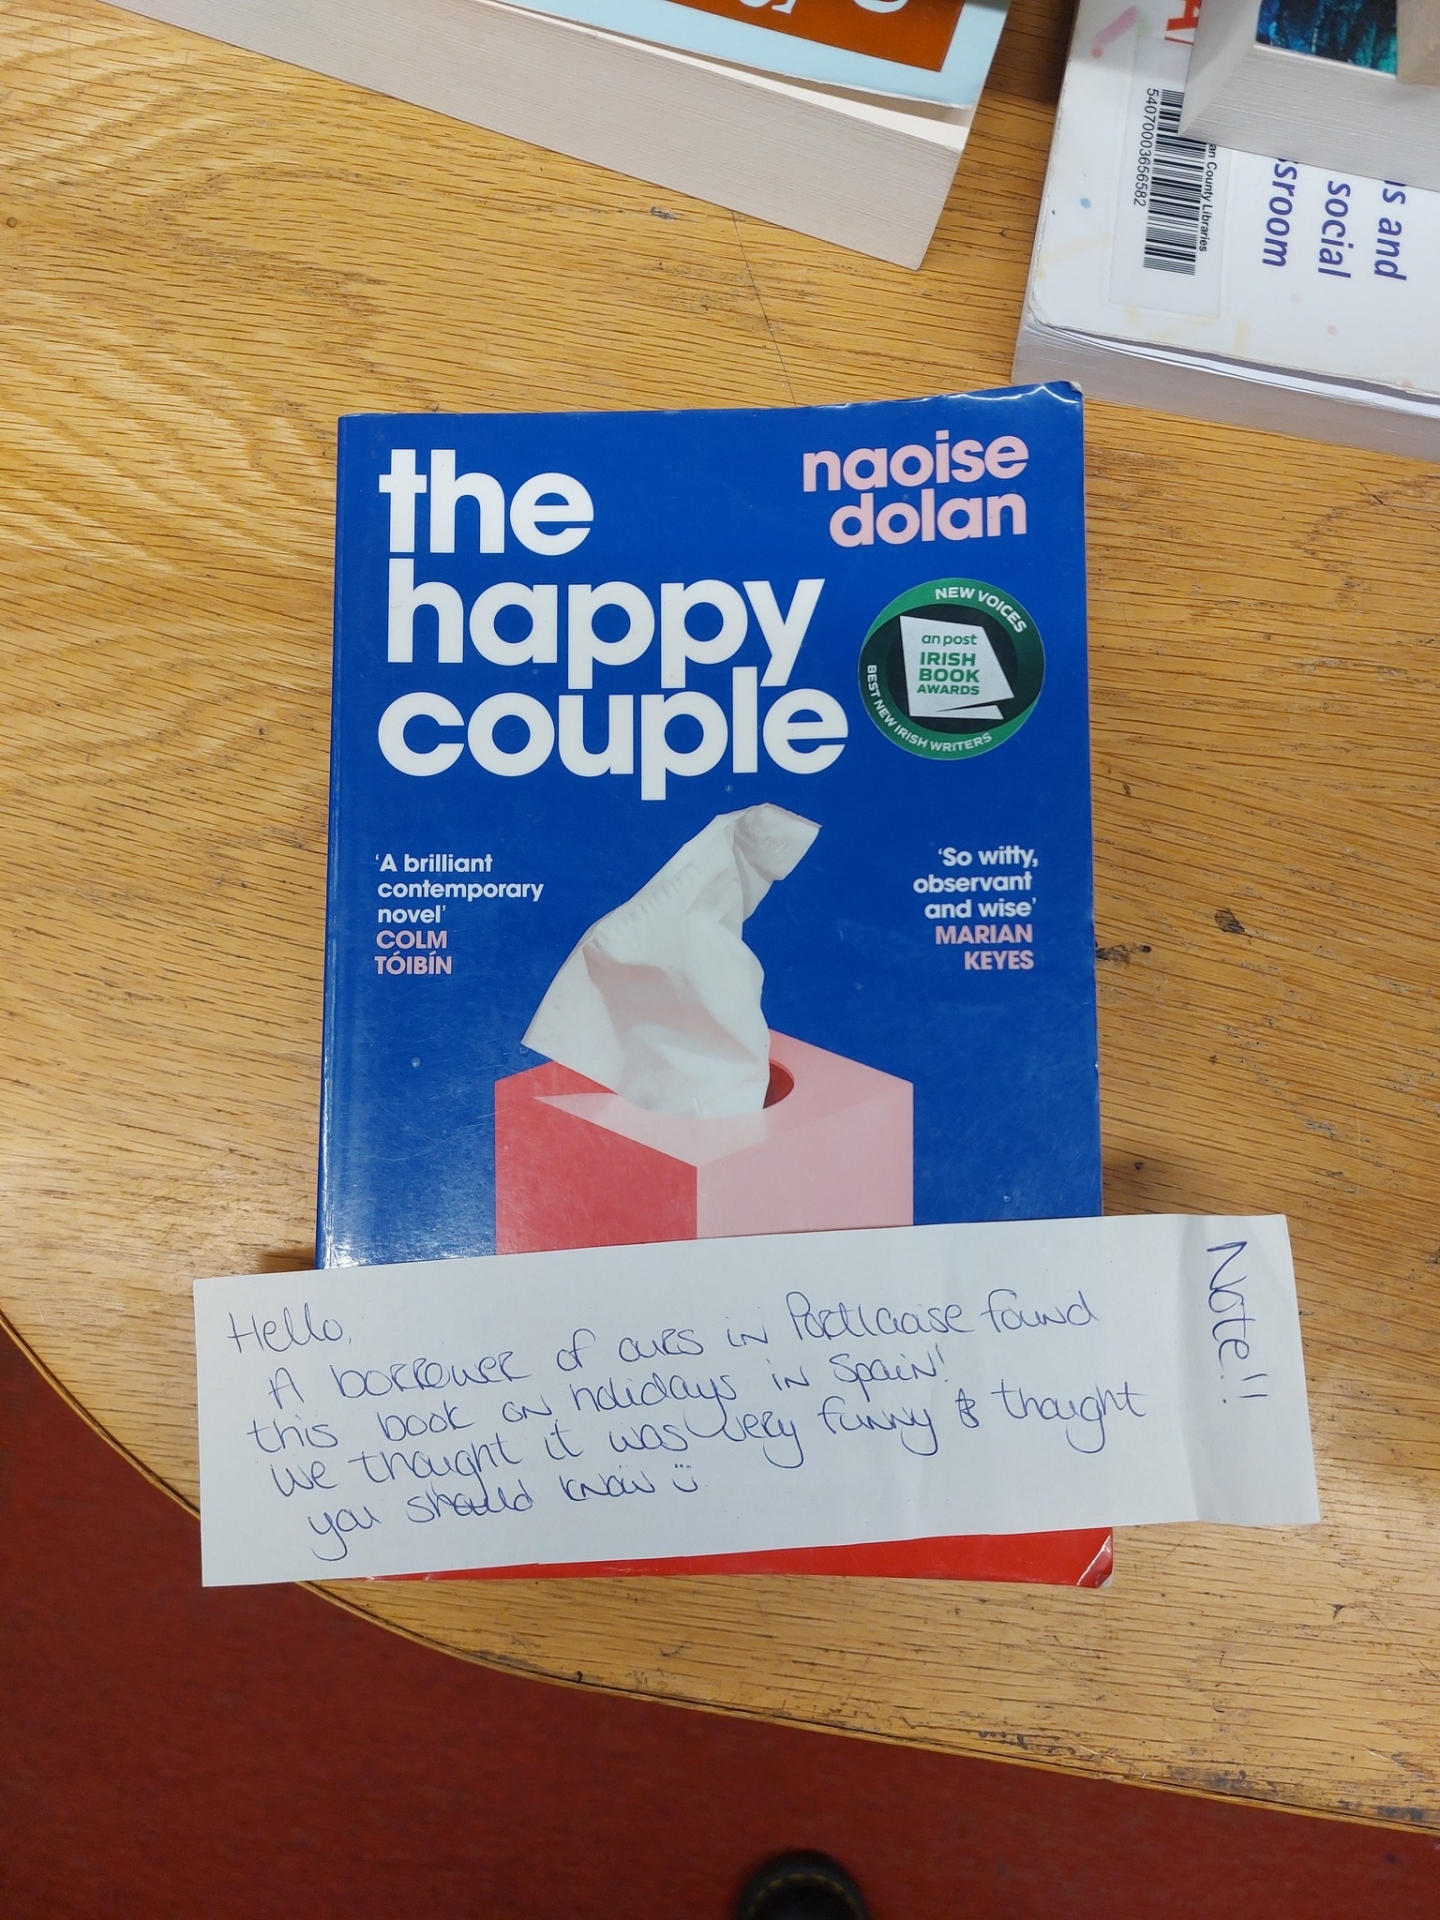 540700003656582
an County Libraries
sroom
social
s and
the
happy
couple
naoise
dolan
NEW VOICES
an post
IRISH
BOOK
AWARDS
BEST NEW IRISH WRITERS
'A brilliant
contemporary
novel'
COLM
TÓIBÍN
'So witty,
observant
and wise'
MARIAN
KEYES
Hello,
A borrower of ours in Portlaoise found
this book on holidays in Spain!
we thought it was very funny & thought
you should know ü
Note!!